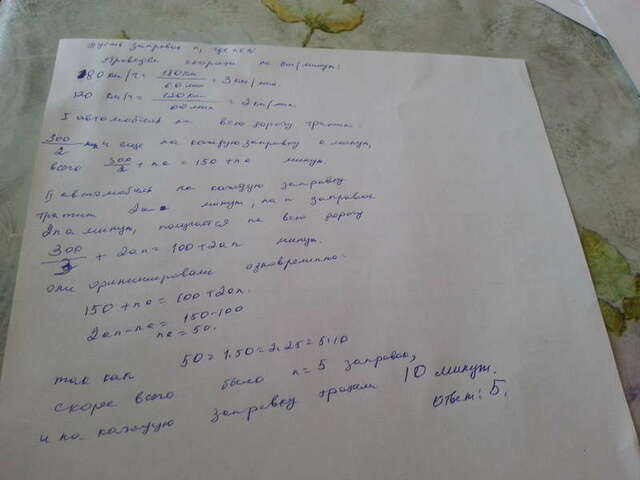 Пусть заправок n, где n∈N
Приведём скорости по км/минут:
180 км/ч = 180км/60мин = 3км/мин.
120 км/ч = 120км/60мин = 2км/мин
I автомобиль на всю дорогу тратит
300/2 и еще на каждую заправку a минут,
всего 300/2 + na = 150 + na минут.
II автомобиль на каждую заправку
тратит 2a минут, на n заправок
2na минут, получается на всю дорогу
300/3 + 2an = 100 + 2an минут.
они финишировали одновременно.
150 + na = 100 + 2an.
2an - na = 150-100
na = 50.
так как 50 = 1·50 = 2·25 = 5·10
скорее всего было n = 5 заправок,
и на каждую заправку тратили 10 минут.
Ответ: 5.